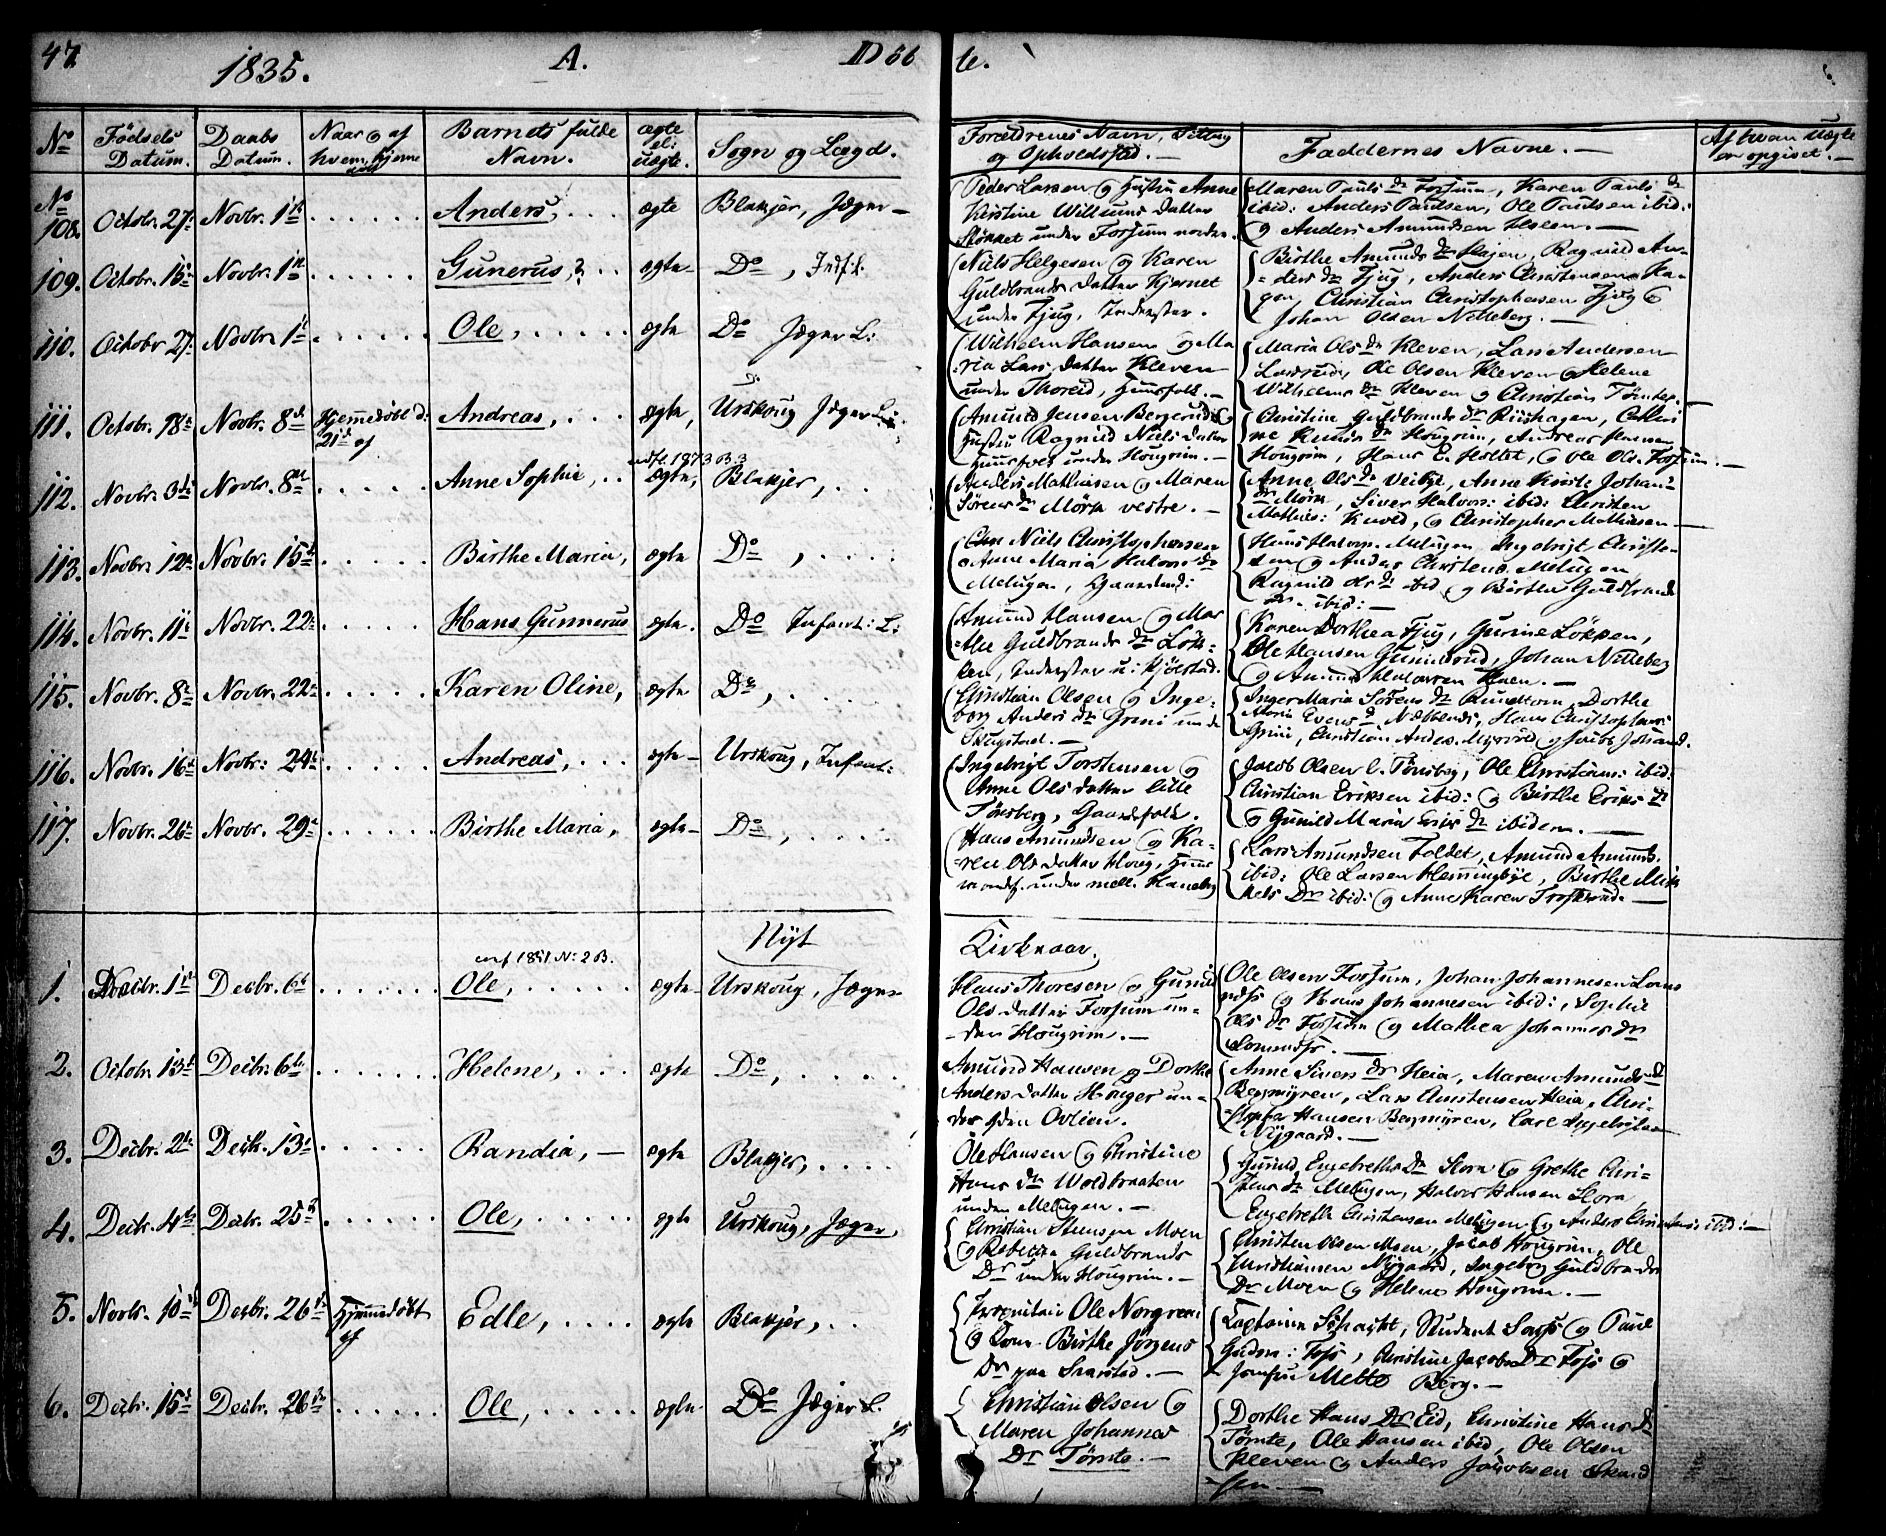 47.
1835.
A.
D 66
te.
No
Fødsels Datum.
Daabs Datum.
Naar og af hvem hjemedøbt
Barnets fulde Navn.
ægte el: uægte.
Sogn og Lægd.
Forældrenes Navn, Stilling og Opholdsstæd. —
Faddernes Navne. —
Af hvem Uægte er opgiset. —
No 108. Octobr. 27 Novbr. 1 . . . . . Anders, ægte Blakjer, Jæger —
Peder Larsen og Hustru Anne
Kirstine Willums Datter
Stokket under Forsum nordre.
Maren Pauls Dr Forsum, Karen Pauls Dr
ibid: Anders Paulsen, Ole Paulsen ibid:
og Anders Amundsen Holen. —
109. Octobr. 15 Novbr. 1 . . . . . Gunerus, . . ægte — Do, Indf:l.
Niels Helgesen og Karen
Guldbrands Datter Kjernet
under Fjug, Inderster.
Birthe Amunds Dr Hagen, Ragnild An-
-ders Dr Fjug, Anders Christensen Ha-
gen, Christian Christophersen Fjug og
Johan Olsen Nilleberg. —
110. Octobr 27 Novbr. 1 . . . . . Ole, . . . . . ægte Do Jæger L:
Wilhelm Hansen og Ma
ria Lars Datter Kleven
under Thoreid, Huusfolk. —
Maria Ols Dr Kleven, Lars Andersen
Ole Olsen Kleven og Helene
Wilhelms Dr Kleven og Christian Tömte. —
111. Octobr. 18 Novbr. 8 Hjemmedøbt d: 21 af Andreas, . . . ægte, Urskoug Jæger L:
Amund Jensen Bergerud og
Hustru Ragnild Niels Datter
Huusfolk under Hougrim. —
Christine Guldbrands Dr Riishagen,
Hougrim, Andreas
Hougrim, Hans E. Holtet, og Ole Ols: Forsum. —
112. Novbr. 3 Novbr. 8 . . . . . Anne Sophie, . . 1873 B. 3 ægte, Blakjer, . .
Anders Mathisen og Maren
Sörens Dr Mörk vestre. —
Anne Ols Dr Veibye, Anne Kirste Johan:
Dr Mörk, Siver Halvors: ibid: Christen
Mathis: Kuvld, og Christopher Mathisen —
113. Novbr. 12 Novbr. 15 . . . . . Birthe Maria, ægte Do, . . . .
Niels Christophersen
Anne Maria Halvors Dr
Melugen, Gaardmd:
Hans Halvors. Melugen Ingebrigt Christo-
sen og Anders Christens. Melugen,
Ragnild Ols Dr ibid og Birthe Guldbrands
Dr. ibid: —
114. Novbr. 11 Novbr. 22 . . . . . Hans Gunnerus ægte. Do Infant: L:
Amund Hansen og Mar
the Guldbrands Dr Løk-
ken, Inderster u: Kjölstad.
Karen Dorthea Fjug, Gurine Lökken,
Ole Hansen Gunderud, Johan Nilleberg
og Amund Halvorsen Haen. —
115. Novbr. 8 Novbr. 22 . . . . . Karen Oline, ægte Do, . . . .
Christian Olsen og Inge-
borg Anders Dr Grini under
Skugstad. —
Inger Maria Sörens Dr Rundtom, Dorthe
Maria Evens Dr Næbbends, Hans Christophers:
Grini, Christian Anders. og Jacob Johand.
116. Novbr. 16 Novbr: 24 . . . . . Andreas, . . . ægte — Urskoug, Infant:
Ingebrigt Torstensen og
Anne Ols Datter lille
Tönsberg, Gaardfolk.
Jacob Olsen l. Tönsberg, Ole Christians: ibid:
Christian Eriksen ibid: og Birthe Eriks Dr
og Gunild Maria Eriks Dr ibidem. —
117. Novbr. 26 Novbr. 29 . . . . . Birthe Maria, ægte — Do, . . . .
Hans Amundsen og Ka-
-ren Ols Datter Houg, Huus
mandsf. under mell. Haneborg
Lars Amundsen Toldet, Amund Amunds.
ibid: Ole Larsen Hemmingbye, Birthe Mik
kels Dr ibid: og Anne Karen Troserud. —
Nyt Kirkeaar.
1. Decbr. 1 Decbr. 6 . . . . . conf 1851 No: 2 B. Ole, . . . . . ægte — Urskoug, Jæger
Hans Thoresen og Gunild
Ols Datter Forsum un-
-der Hougrim. —
Ole Olsen Forsum, Johan Johannesen Lons
og Hans Johannesen ibid:, Sophie
Ols Dr Forsum og Mathea Johannes Dr
2. Octobr. 13 Decbr. 6 . . . . . Helene, . . . ægte Do, . . . . .
Amund Hansen og Dorthe
Anders Datter Houger un-
der Ovlien.
Anne Sivers Dr Heia, Maren Amunds Dr
Bergmyren, Lars Christensen Heia, Chri-
stopher Hansen Bergmyren, Carl Ingebrigtsen
Nygaard. —
3. Decbr. 2 Decbr. 13 . . . . . Randia, — ægte Blakjer, . . . .
Ole Hansen og Christine
Hans Dr Woldbraaten
under Melugen. —
Gunild Engebreths Dr Slora og Grethe Chri-
stens Dr Melugen, Halvor Hansen Slora,
Engebreth Christensen Melugen og Anders Christens: ibid: —
4. Decbr. 4 Decbr. 25 . . . . . Ole, . . . . . ægte Urskoug, Jæger,
Christian Moen
og Rebecka Guldbrands
Dr under Hougrim. —
Christen Olsen Moen, Jacob Hougrim, Ole
Christiansen Nygaard, Ingeborg Guldbrands
Dr Moen og Helene Hougrim. —
5. Novbr. 10 Decbr. 26 Hjemmedøbt af Edle, . . . . ægte Blakjer, . .
Ole Norgreen
og Kone Birthe Jörgens
Dr paa Svarstad. —
Captaine Schacht, Student Sarss og Paul
Gudm: Foss, Christine Jacobs Dr Foss og
Jomfru Mette Berg. —
6. Decbr. 15 Decbr. 26 . . . . . Ole, . . . . . ægte Do Jæger L.
Christian Olsen og
Maren Johannes
Dr Tömte. —
Dorthe Hans Dr Eid, Christine Hans Dr
Tömte, Ole Hansen ibid, Ole Olsen
Kleven og Anders Jacobsen Skand
sen —